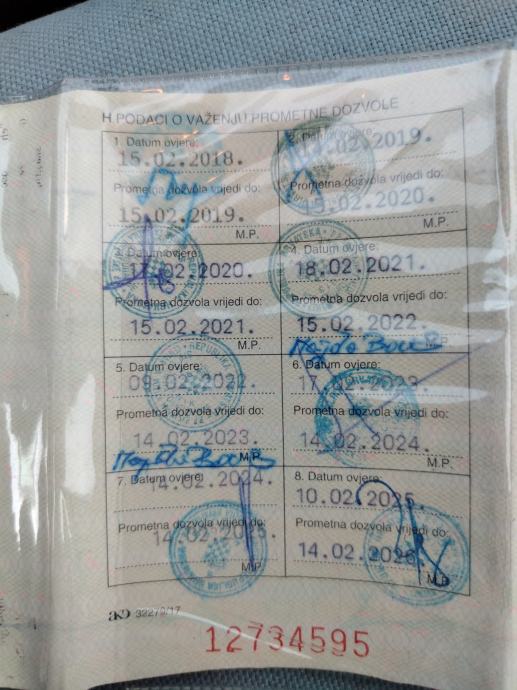 H PODACI O VAŽENJU PROMETNE DOZVOLE
1. Datum ovjere:
15.02.2018.
Prometna dozvola vrijedi do:
15.02.2019.
M.P.
2. Datum ovjere:
14.02.2019.
Prometna dozvola vrijedi do:
15.02.2020.
M.P.
3. Datum ovjere:
17.02.2020.
Prometna dozvola vrijedi do:
15.02.2021.
M.P.
4. Datum ovjere:
18.02.2021.
Prometna dozvola vrijedi do:
15.02.2022.
M.P.
5. Datum ovjere:
09.02.2022.
Prometna dozvola vrijedi do:
14.02.2023.
M.P.
6. Datum ovjere:
17.02.2023.
Prometna dozvola vrijedi do:
14.02.2024.
M.P.
7. Datum ovjere:
14.02.2024.
Prometna dozvola vrijedi do:
14.02.2025.
M.P.
8. Datum ovjere:
10.02.2025.
Prometna dozvola vrijedi do:
14.02.2026.
M.P.
12734595